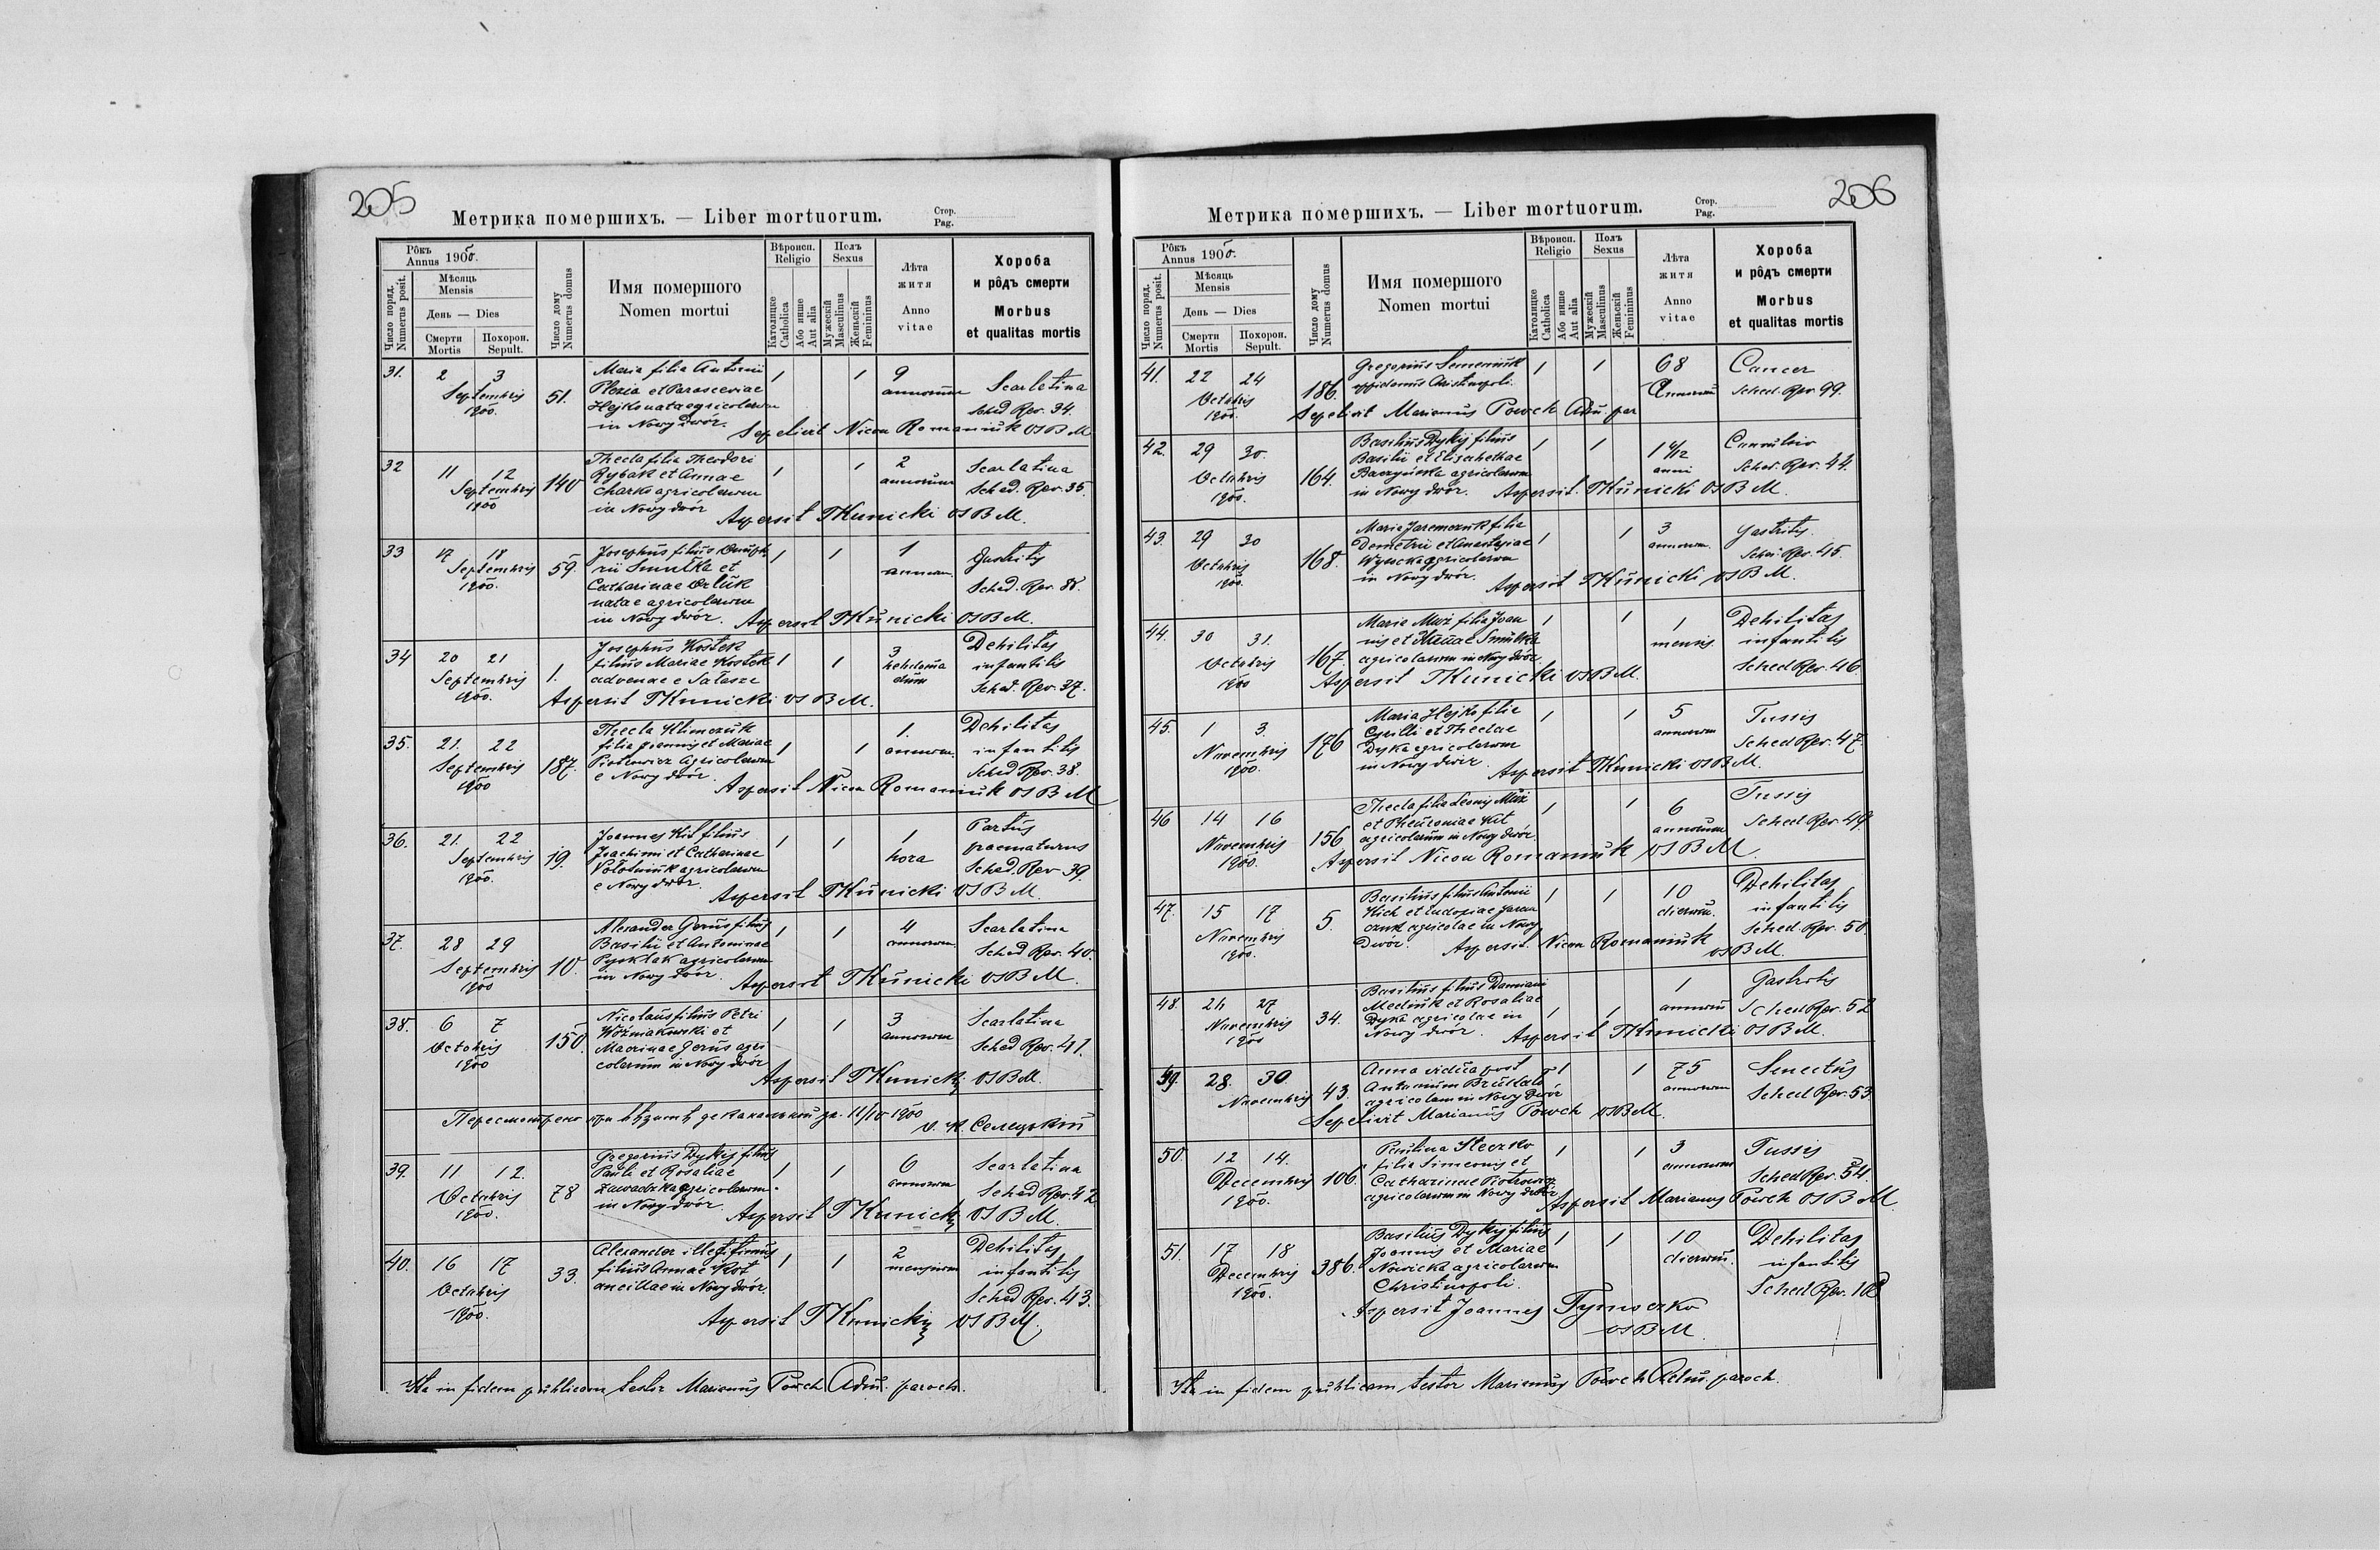 205
Метрика померших. — Liber mortuorum.
Стор.
Pag.
Рôкъ
Annus 1900.
Мѣсяць
Mensis
День — Dies
Смерти
Mortis
Похорон.
Sepult.
Число поряд.
Numerus posit.
Число дому
Numerus domus
Имя помершого
Nomen mortui
Вѣроисп.
Religio
Католицке
Catholica
Або инше
Aut alia
Полъ
Sexus
Мужескій
Masculinus
Женьскій
Femininus
Лѣта
житя
Anno
vitae
Хороба
и рôдъ смерти
Morbus
et qualitas mortis
31. 2 3 Septembris 1900. 51.
Maria filia Antonii
et Parasceviae
Hejko nata agricolarum
in Nowy dwór.
1 1 9 annorum
Scarlatina
Sched Rev. 34.
Sepelivit Nicon Romaniuk OSBM
32 11 12 Septembris 1900 140
Thecla filia Theodori
Rybak et Annae
Charko agricolarum
in Nowy dwór
1 1 2 annorum
Scarlatina
Sched. Rev. 35.
Aspersit TKunicki OSBM.
33 17 18 Septembris 1900. 59.
Josephus filius Onuph
rii Smulka et
Catharinae Orluk
natae agricolarum
in Nowy dwór.
1 1 1 annum
Gastritis
Sched. Rev. 88.
Aspersit TKunicki OSBM.
34 20 21 Septembris 1900. 1.
Josephus Kostek
filius Mariae Kostek
advenae e
1 1 3 hebdoma
dum
Debilitas
infantilis
Sched. Rev. 37.
Aspersit TKunicki OSBM.
35. 21. 22 Septembris 1900 187.
Thecla Klimczuk
filia Joannis et Mariae
Piotrowicz agricolarum
e Nowy dwór.
1 1 1. annorum.
Debilitas
infantilis
Sched Rev. 38.
Aspersit Nicon Romaniuk OSBM
36. 21. 22 Septembris 1900. 19.
Joannes Kit filius
Joachimi et Catharinae
Wołoszniuk agricolarum
e Nowy dwór.
1 1 1 hora
Partus
praematurus
Sched. Rev 39.
Aspersit TKunicki OSBM.
37. 28 29 Septembris 1900 10.
Alexander Gerus filius
Basilii et Antoninae
agricolarum
in Nowy dwór.
1 1 4 annorum.
Scarlatina
Sched Rev. 40.
Aspersit TKunicki OSBM.
38. 6 7 Octobris 1900 150
Nicolaus filius Petri
Woźniakowski et
Macrinae Gerus agri
colarum in Nowy dwór
1 1 3 annorum
Scarlatina
Sched Rev. 41.
Aspersit TKunicki OSBM.
Пересмотрено при 11/10 1900
39. 11 12. Octobris 1900. 78
Gregorius Dykij filius
Pauli et Rosaliae
Zawadzka agricolarum.
in Nowy dwór.
1 1 6 annorum
Scarlatina
Sched Rev. 42
Aspersit TKunicki OSBM.
40. 16 17 Octobris 1900. 33.
Alexander illegitimus
filius Annae Kot
ancillae in Nowy dwór.
1 1 2 mensium
Debilitas
infantilis
Sched Rev. 43.
Aspersit TKunicki OSBM.
Ita in fidem publicam testor Marianus Powch Adm. paroch.
206
Метрика померших. — Liber mortuorum.
Стор.
Pag.
Рôкъ
Annus 1900.
Мѣсяць
Mensis
День — Dies
Смерти
Mortis
Похорон.
Sepult.
Число поряд.
Numerus posit.
Число дому
Numerus domus
Имя помершого
Nomen mortui
Вѣроисп.
Religio
Католицке
Catholica
Або инше
Aut alia
Полъ
Sexus
Мужескій
Masculinus
Женьскій
Femininus
Лѣта
житя
Anno
vitae
Хороба
и рôдъ смерти
Morbus
et qualitas mortis
41. 22 24 Octobris 1900. 186.
Gregorius Semeniuk
oppidanus Christinopoli.
1 1 68 Annorum
Cancer
Sched. Rev. 99.
Sepelivit Marianus Powch Adm. par
42. 29 30. Octobris 1900. 164.
Basilius Dykij filius
Basilii et Elisabethae
Baczyńska agricolarum
in Nowy dwór.
1 1 1 4/12 anni
Sched. Rev. 44.
Aspersit. TKunicki OSBM.
43. 29 30 Octobris 1900. 168.
Maria Jaremczuk filia
Demetrii et Anastasiae
agricolarum
in Nowy dwór.
1 1 3 annorum.
Gastritis.
Sched Rev. 45.
Aspersit TKunicki OSBM.
44. 30 31. Octobris 1900 167.
Maria Muż filia Joan
nis et Smulka
agricolarum in Nowy dwór
1 1 1 mensis
Debilitas
infantilis
Sched Rev. 46.
Aspersit TKunicki OSBM.
45. 1 3. Novembris 1900. 176
Maria Hejko filia
Cyrilli et Theclae
Dyka agricolarum
in Nowy dwór.
1 1 5 annorum
Tussis
Sched Rev. 47.
Aspersit TKunicki OSBM.
46 14 16 Novembris 1900. 156
Thecla filia Leonis Muż
et Pheuroniae Kit
agricolarum in Nowy dwór.
1 1 6 annorum
Tussis
Sched Rev 49.
Aspersit Nicon Romaniuk OSBM.
47. 15 17 Novembris 1900. 5.
Basilius filius Antonii
Kich et Eudoxiae Jarem
czuk agricolae in Nowy
Dwór.
1 1 10 dierum.
Debilitas
infantilis
Sched. Rev. 50.
Aspersit. Nicon Romaniuk
OSBM.
48. 24 27 Novembris 1900 34.
Basilius filius Damiani
Mediuk et Rosaliae
Dyka agricolae in
Nowy dwór.
1 1 1 annorum
Gastritis
Sched Rev. 52
Aspersit TKunicki OSBM.
49. 28. 30. Novembris 43.
Anna vidua post
Antonium
agricolam in Nowy Dwór
1 1 75 annorum
Senectus
Sched Rev. 53
Sepelivit Marianus Powch OSBM.
50. 12 14. Decembris 1900. 106.
Paulina Steczko
filia Simeonis et
Catharinae Piotrowicz
agricolarum in Nowy dwór
1 1 3 annorum
Tussis
Sched Rev. 54.
Aspersit Marianus Powch OSBM.
51. 17 18 Decembris 1900. 386.
Basilius Dykij filius
Joannis et Mariae
Nowicka agricolarum
Christinopoli.
1 1 10 dierum.
Debilitas
infantilis
Sched Rev. 108
Aspersit Joannes Tymoczko
OSBM.
Ita in fidem publicam testor Marianus Powch Adm. paroch.